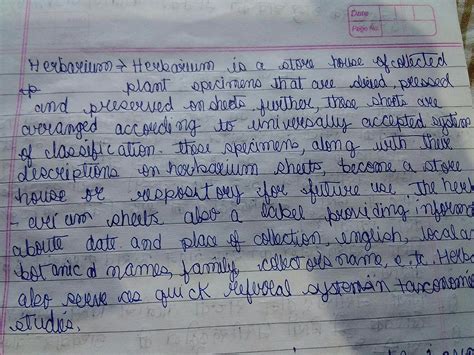 Date
Page No.
Herbarium → Herbarium is a store house of collected
plant specimens that are dried, pressed
and preserved on sheets further, these sheets are
arranged according to universally accepted system
of classification. these specimens, along with their
descriptions on herbarium sheets, become a store
house or respository for future use. The herb
- arium sheets also a label providing inform
aboute date and place of collection, english, local a
botanical names, family, collectors name, e.tc. Herba
also serve as quick referal system in taxonomic
studis.